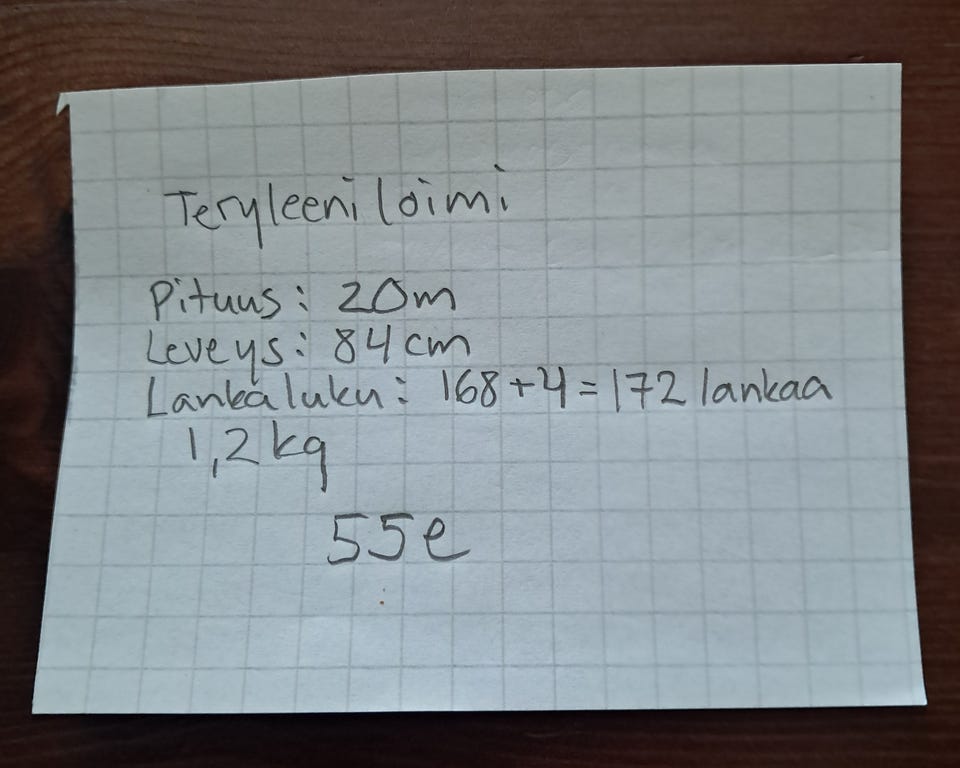 Teryleeni loimi
Pituus: 20m
Leveys: 84 cm
Lankaluku: 168+4=172 lankaa
1,2 kg
55e